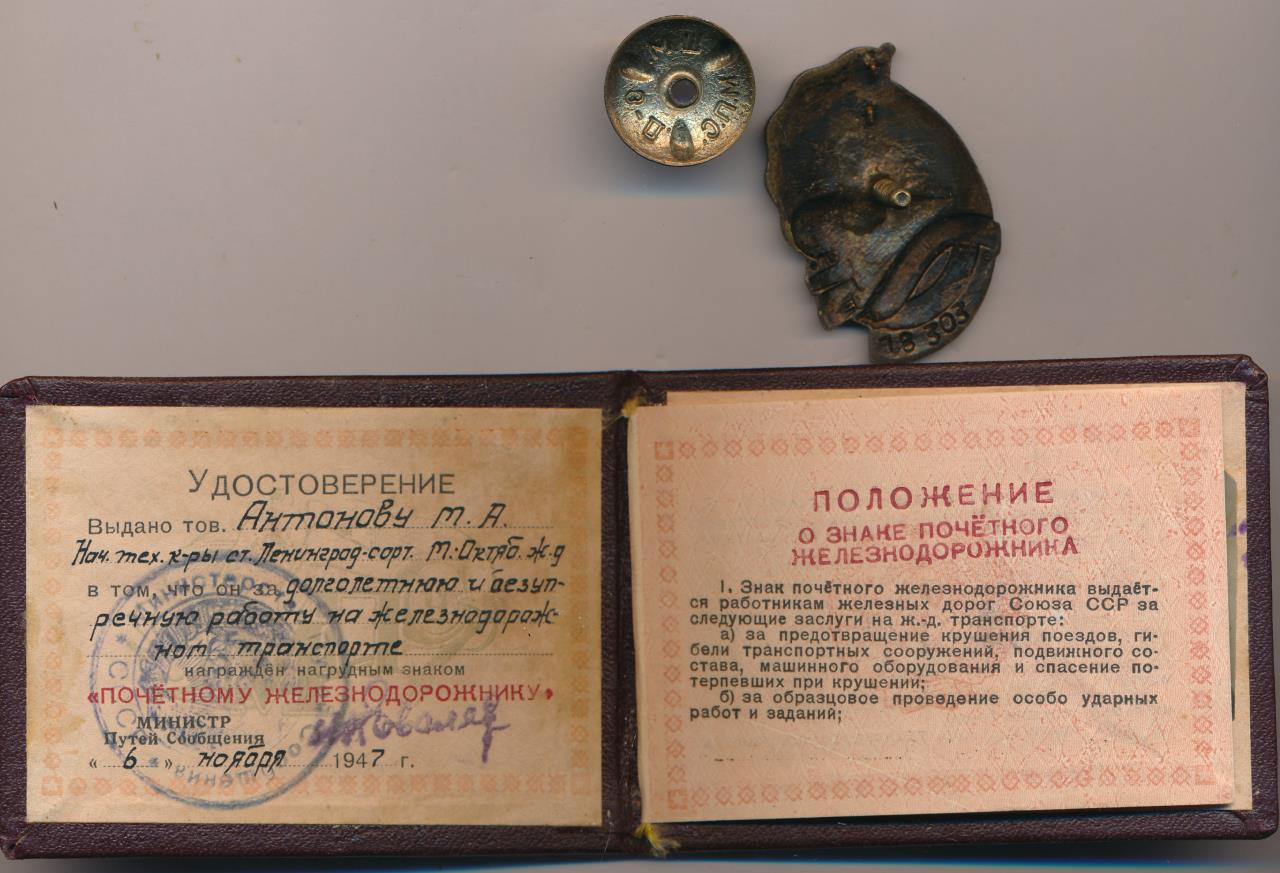 М.Ш.
W.U.C.
Ф-Д.
18 303
УДОСТОВЕРЕНИЕ
Выдано тов. Антонову М. А.
Нач. тех. к-ры ст. Ленинград-сорт. М. Октяб. ж-д
в том, что он за долголетнюю и безуп-
речную работу на железнодорож-
ном транспорте
награждён нагрудным знаком
«ПОЧЁТНОМУ ЖЕЛЕЗНОДОРОЖНИКУ»
МИНИСТР
Путей Сообщения
« 6 » ноября 1947 г.
ПОЛОЖЕНИЕ
О ЗНАКЕ ПОЧЁТНОГО
ЖЕЛЕЗНОДОРОЖНИКА
1. Знак почётного железнодорожника выдаёт-
ся работникам железных дорог Союза ССР за
следующие заслуги на ж.-д. транспорте:
а) за предотвращение крушения поездов, ги-
бели транспортных сооружений, подвижного со-
става, машинного оборудования и спасение по-
терпевших при крушении;
б) за образцовое проведение особо ударных
работ и заданий;